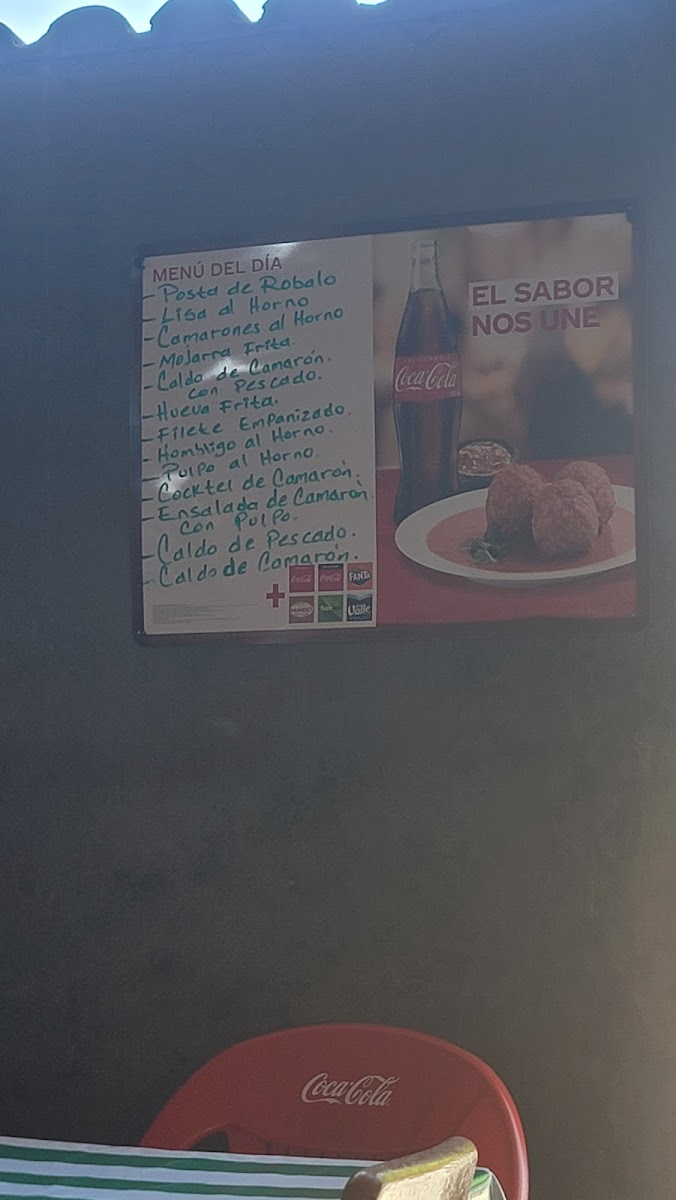 MENÚ DEL DÍA
- Posta de Robalo
- Lisa al Horno
- Camarones al Horno
- Mojarra Frita.
- Caldo de Camarón.
con Pescado.
- Hueva Frita.
- Filete Empanizado.
- Hombligo al Horno.
- Pulpo al Horno.
- Cocktel de Camarón.
- Ensalada de Camarón
con Pulpo.
- Caldo de Pescado.
- Caldo de Camarón.
+
Coca-Cola Coca-Cola FANTA
Valle
EL SABOR
NOS UNE
Coca-Cola
Coca-Cola